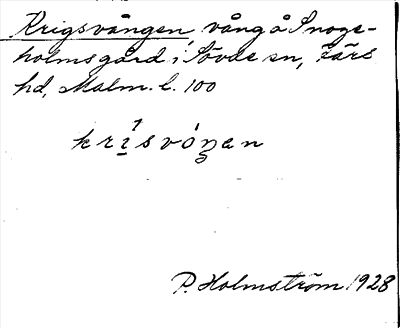 Krigsvången, vång å Snoge-
holms gård i Sövde sn, Färs
hd, Malm. l. 100
krísvóŋen
P. Holmström 1928